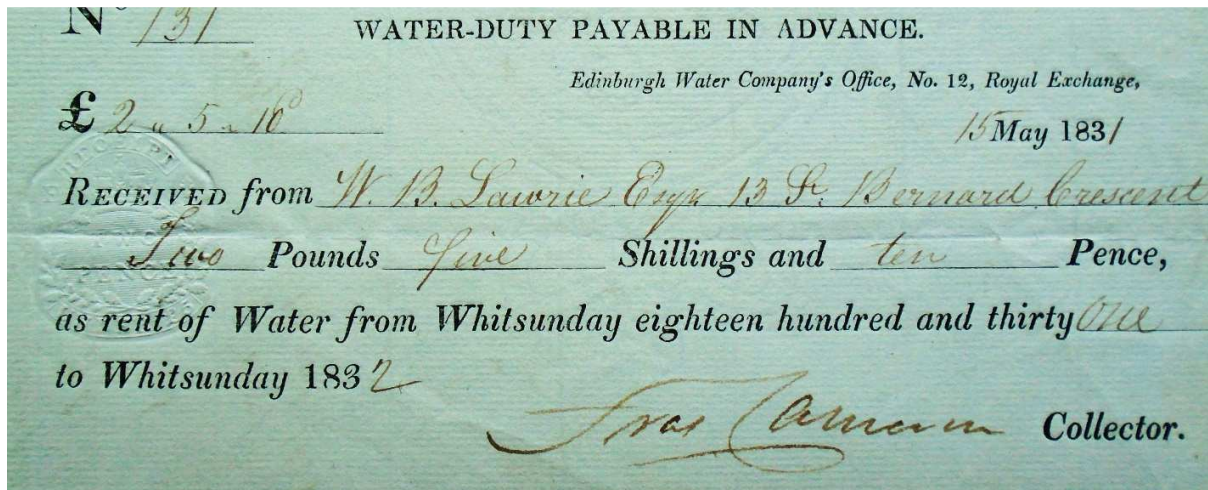 No 131
WATER-DUTY PAYABLE IN ADVANCE.
Edinburgh Water Company's Office, No. 12, Royal Exchange,
£ 2 " 5 " 10
15 May 1831
RECEIVED from W. B. Lawrie Esqr 13 St. Bernard Crescent
Two Pounds five Shillings and ten Pence,
as rent of Water from Whitsunday eighteen hundred and thirty one
to Whitsunday 1832
Collector.
RECEIPT